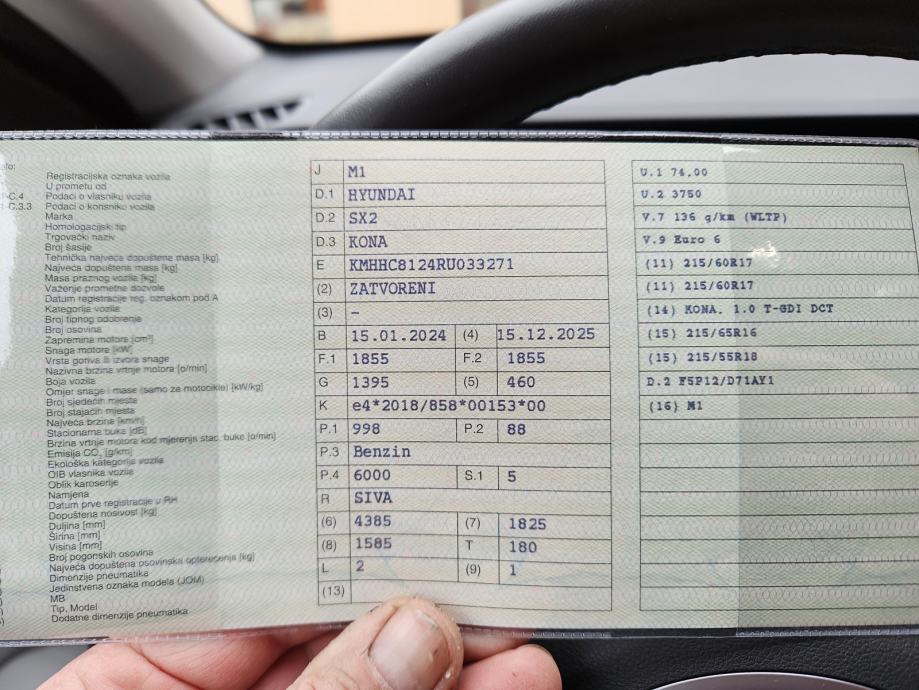 Registracijska oznaka vozila
U prometu od
Podaci o vlasniku vozila
Podaci o korisniku vozila
Marka
Homologacijski tip
Trgovački naziv
Broj šasije
Tehnička najveća dopuštena masa [kg]
Najveća dopuštena masa [kg]
Masa praznog vozila [kg]
Važenje prometne dozvole
Datum registracije reg. oznakom pod A
Kategorija vozila
Broj tipnog odobrenja
Broj osovina
Zapremina motora [cm³]
Snaga motora [kW]
Vrsta goriva ili izvora snage
Nazivna brzina vrtnje motora [o/min]
Boja vozila
Omjer snage i mase (samo za motocikle) [kW/kg]
Broj sjedećih mjesta
Broj stajaćih mjesta
Najveća brzina [km/h]
Stacionarna buka [dB]
Brzina vrtnje motora kod mjerenja stac. buke [o/min]
Emisija CO₂ [g/km]
Ekološka kategorija vozila
OIB vlasnika vozila
Oblik karoserije
Namjena
Datum prve registracije u RH
Dopuštena nosivost [kg]
Duljina [mm]
Širina [mm]
Visina [mm]
Broj pogonskih osovina
Najveća dopuštena osovinska opterećenja [kg]
Dimenzije pneumatika
Jedinstvena oznaka modela (JOM)
MB
Tip, Model
Dodatne dimenzije pneumatika
J M1
D.1 HYUNDAI
D.2 SX2
D.3 KONA
E KMHHC8124RU033271
(2) ZATVORENI
(3) –
B 15.01.2024 (4) 15.12.2025
F.1 1855 F.2 1855
G 1395 (5) 460
K e4*2018/858*00153*00
P.1 998 P.2 88
P.3 Benzin
P.4 6000 S.1 5
R SIVA
(6) 4385 (7) 1825
(8) 1585 T 180
L 2 (9) 1
(13)
U.1 74,00
U.2 3750
V.7 136 g/km (WLTP)
V.9 Euro 6
(11) 215/60R17
(11) 215/60R17
(14) KONA, 1.0 T-GDI DCT
(15) 215/65R16
(15) 215/55R18
D.2 F5P12/D71AY1
(16) M1